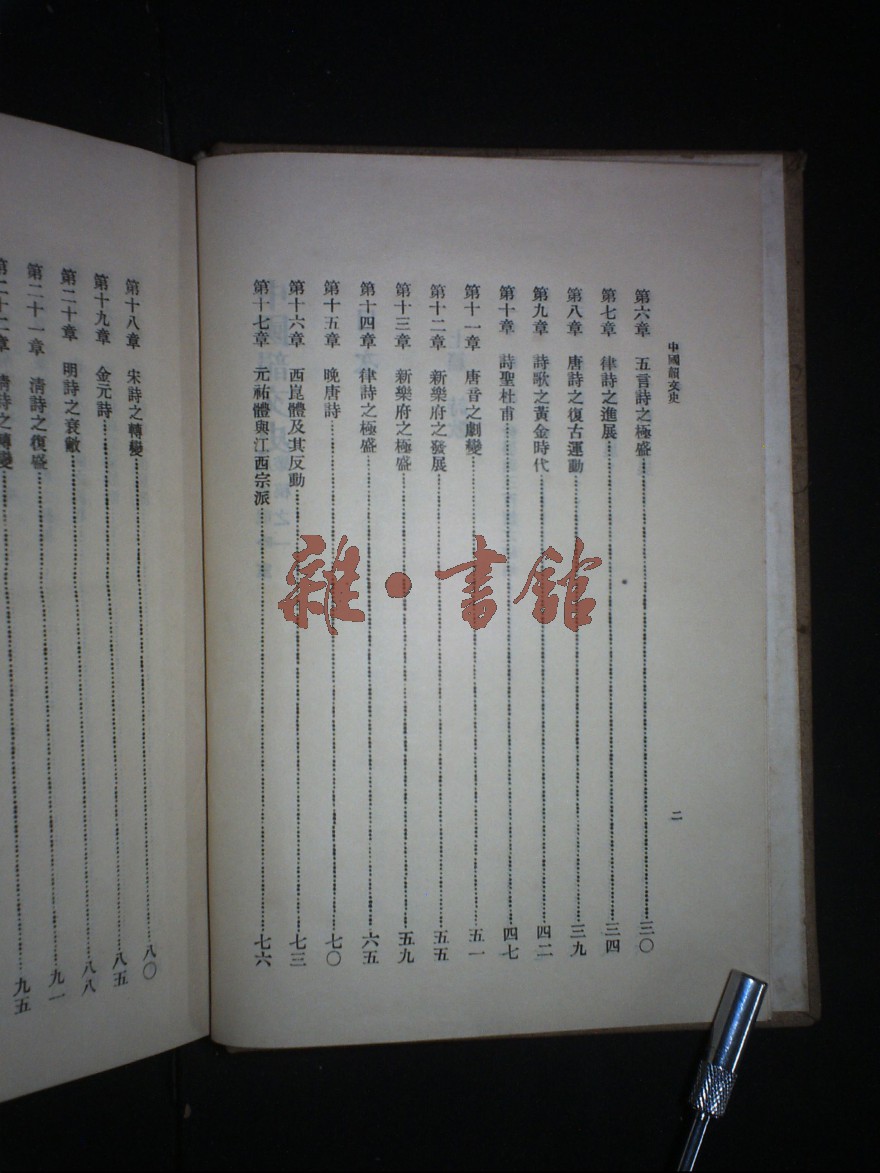 中國韻文史
二
第六章 五言詩之極盛 三〇
第七章 律詩之進展 三四
第八章 唐詩之復古運動 三九
第九章 詩歌之黃金時代 四二
第十章 詩聖杜甫 四七
第十一章 唐音之劇變 五一
第十二章 新樂府之發展 五五
第十三章 新樂府之極盛 五九
第十四章 律詩之極盛 六五
第十五章 晚唐詩 七〇
第十六章 西崑體及其反動 七三
第十七章 元祐體與江西宗派 七六
第十八章 宋詩之轉變 八〇
第十九章 金元詩 八五
第二十章 明詩之衰敝 八八
第二十一章 清詩之復盛 九一
第二十二章 清詩之轉變 九五
雜·書館